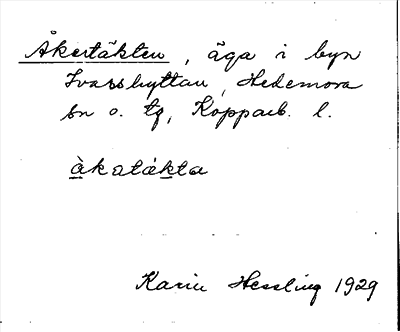 Åkertäkten, äga i byn
Ivasshyttan, Hedemora
sn o. tg, Kopparb. l.
àkatäkta
Karin Hessling 1929